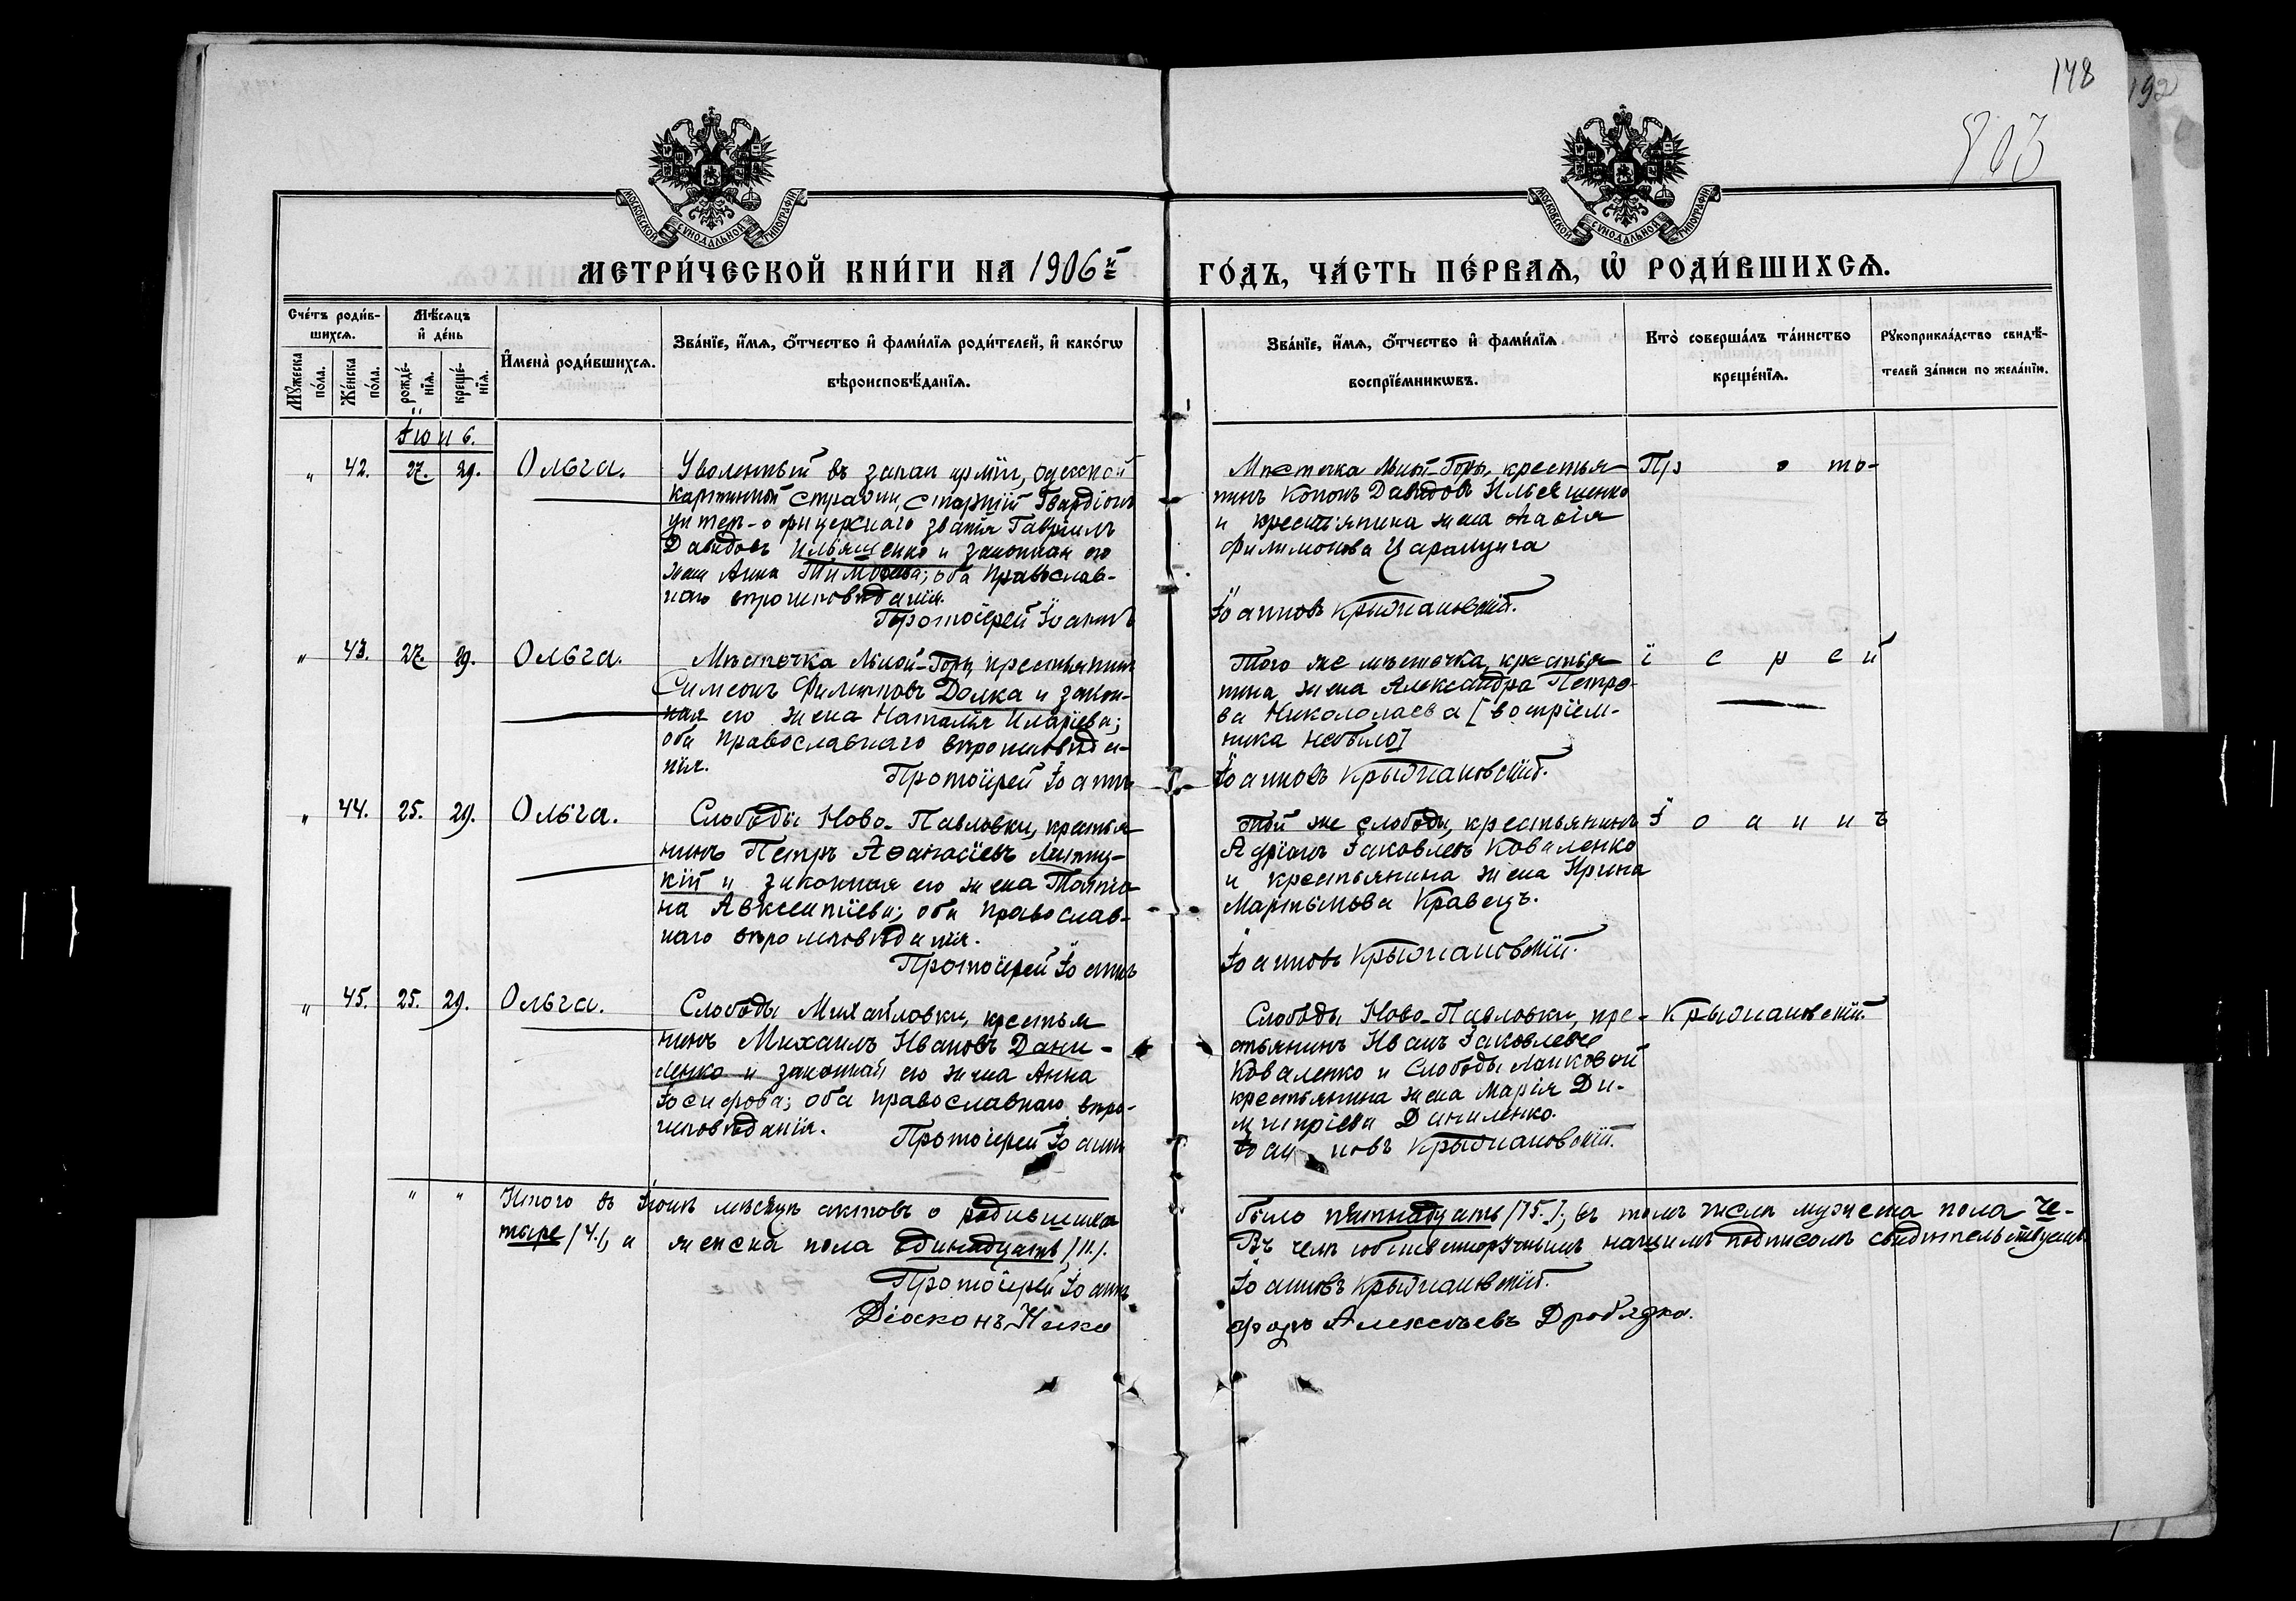 148
192
803
МОСКОВСКОЙ СѴНОДАЛЬНОЙ ТИПОГРАФІИ
МОСКОВСКОЙ СѴНОДАЛЬНОЙ ТИПОГРАФІИ
МЕТРИ́ЧЕСКОЙ КНИ́ГИ НА 1906й
ГО́ДЪ, ЧА́СТЬ ПЕ́РВАѦ, Ѡ҆ РОДИ́ВШИХСѦ.
Сче́тъ роди́в-
шихсѧ.
Мѣ́сѧцъ
и҆ де́нь
Мꙋ́жеска по́ла.
Же́нска по́ла.
рожде́-
нїѧ.
креще́-
нїѧ.
И҆мена̀ роди́вшихсѧ.
Зва́нїе, и҆́мѧ, ѻ҆́тчество и҆ фами́лїѧ роди́телей, и҆ како́гѡ
вѣроисповѣ́данїѧ.
Зва́нїе, и҆́мѧ, ѻ҆́тчество и҆ фами́лїѧ
воспрїе́мникѡвъ.
Кто̀ соверша́лъ та́инство
креще́нїѧ.
Рꙋкоприкла́дство свидѣ́-
телей за́писи по жела́нїю.
Іюнь.
" 42. 27. 29. Ольга.
Уволенный въ запас арміи, Одесской
карантинной стражи, старшій Гвардіонъ
унтеръ-офицерскаго званія Гавріилъ
Давидовъ Ильяшенко и законная его
жена Анна Тимофеева; оба православ-
наго вѣроисповѣданія.
Протоіерей Іоаннъ
Мѣстечка Лысой-Горы, крестья-
нинъ Кононъ Давидовъ Ильяшенко
и крестьянина жена
Филимонова
Іоанновъ Крыжановскій.
Про то-
" 43. 27. 29. Ольга.
Мѣстечка Лысой-Горы, крестьянинъ
Симеонъ Филипповъ Долка и закон-
ная его жена Наталія Иларіева;
оба православнаго вѣроисповѣда-
нія.
Протоіерей Іоаннъ
Того же мѣстечка, крестья-
нина жена Александра Петро-
ва Никололаева [воспріем-
ника небыло]
Іоанновъ Крыжановскій.
і е р е й
" 44. 25. 29. Ольга.
Слободы Ново-Павловки, крестья-
нинъ Петръ Аѳанасіевъ
и законная его жена Татіа-
на Авксентіева; оба православ-
наго вѣроисповѣданія.
Протоіерей Іоаннъ
Той же слободы, крестьянинъ
Адріанъ Іаковлевъ Коваленко
и крестьянина жена Ирина
Мартынова Кравецъ.
Іоанновъ Крыжановскій.
І о а н н ъ
" 45. 25. 29. Ольга.
Слободы Михайловки, крестья-
нинъ Михаилъ Ивановъ Дани-
ленко и законная его жена Анна
Іосифова; оба православнаго вѣро-
исповѣданія.
Протоіерей Іоаннъ
Слободы Ново-Павловки, кре-
стьянинъ Иванъ Іаковлевъ
Коваленко и Слободы
крестьянина жена Марія Ди-
митріева Даниленко.
Іоанновъ Крыжановскій.
Крыжановскій.
" " Итого въ Іюнѣ мѣсяцѣ актовъ о родившихся было пятнадцать /15./; въ томъ числѣ мужеска пола че-
тыре /4./, и женска пола одинадцать /11./. Въ чемъ собственноручнымъ нашимъ подписомъ свидѣтельствуемъ
Протоіерей Іоаннъ Іоанновъ Крыжановскій.
Діаконъ Ники форъ Алексѣевъ Дробязко.